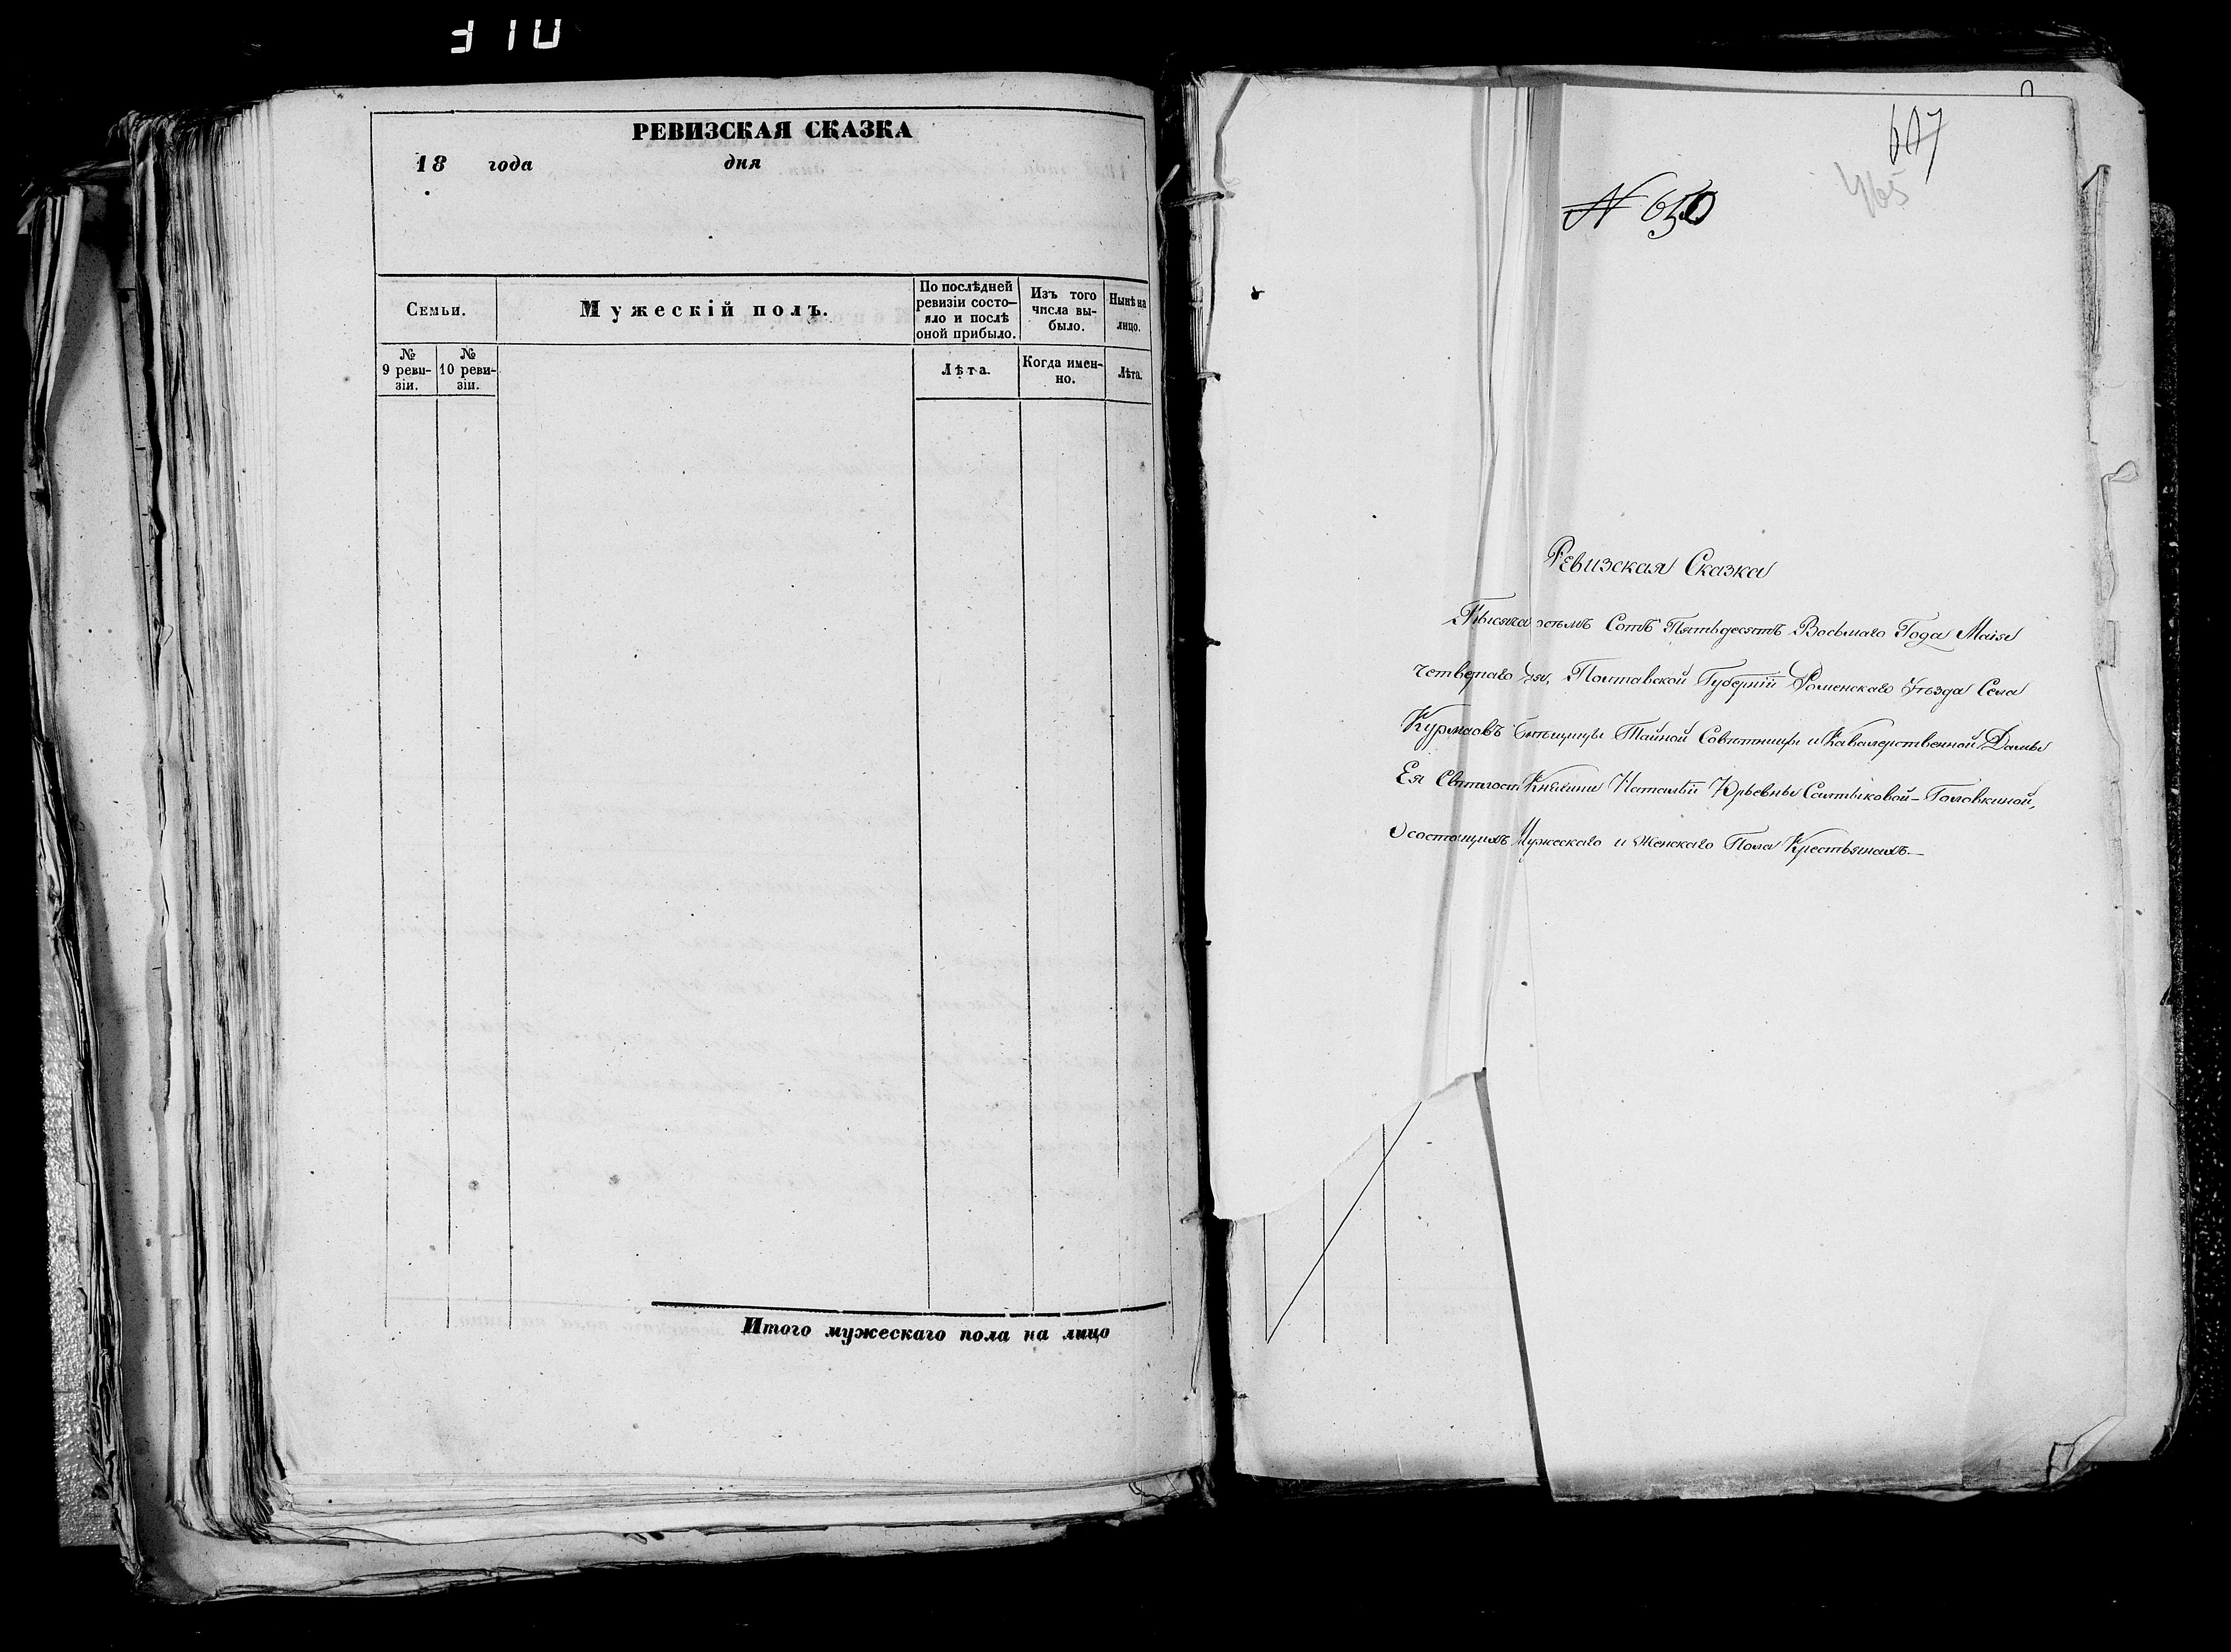 РЕВИЗСКАЯ СКАЗКА
18 года дня
Семьи.
Мужескій полъ.
По послѣдней ревизіи состо-
яло и послѣ оной прибыло.
Изъ того числа вы-
было.
Нынѣ на лицо.
№ 9 реви-
зіи.
№ 10 реви-
зіи.
Лѣта.
Когда имен-
но.
Лѣта.
Итого мужескаго пола на лицо
607
465
N 650
Ревизская Сказка
Тысяча осемъ Сотъ Пятьдесятъ Восьмаго Года Маія
четвертаго дня, Полтавской Губерніи Роменскаго Уѣзда Села
Курмановъ Тайной Совѣтницы и Кавалерственной Дамы
Ея Свѣтлост Княгини Наталіи Юрьевны Салтыковой-Головкиной,
О состоящихъ Мужескаго и Женскаго Пола Крестьянахъ.